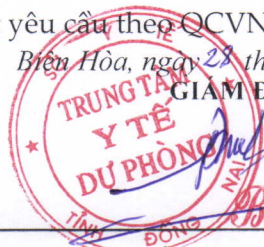 yêu cầu theo QCVN
Biên Hòa, ngày 28 th
GIÁM Đ
TRUNG TÂM
Y TẾ
DỰ PHÒNG
TỈNH ĐỒNG NAI